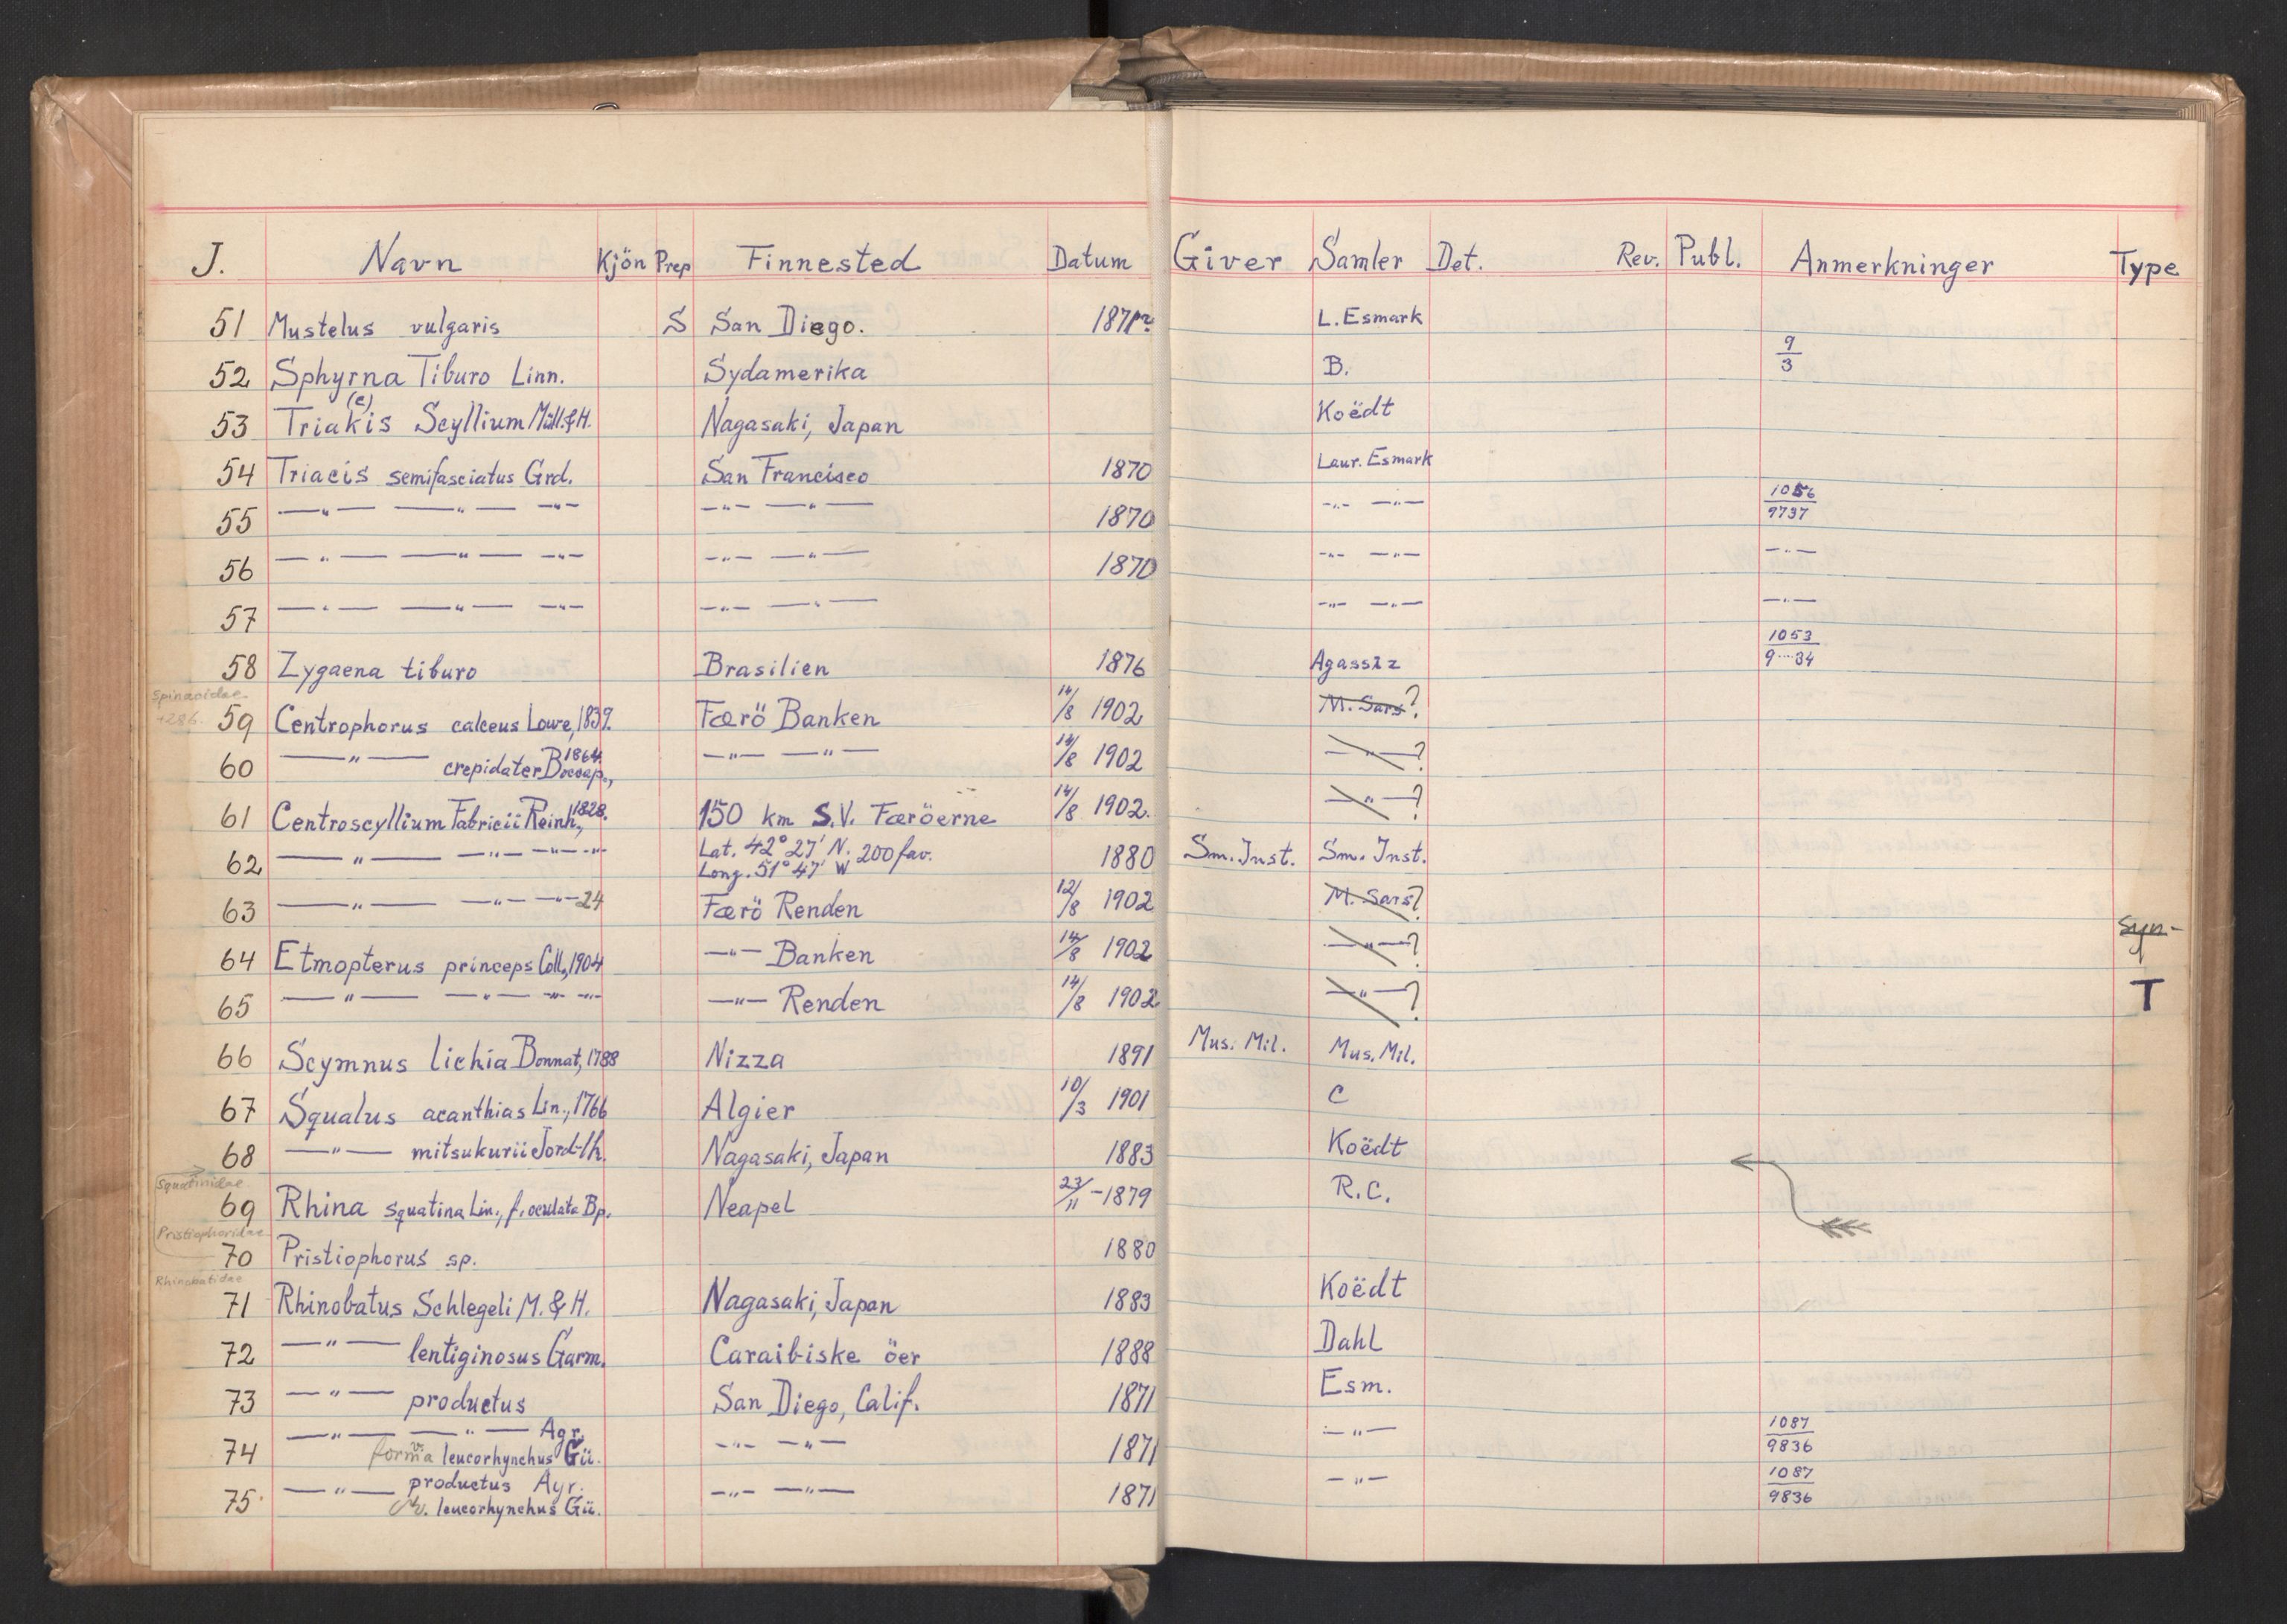 J. Navn Kjön Prep Finnested Datum Giver Samler Det. Rev. Publ. Anmerkninger Type
51 Mustelus vulgaris S San Diego. 1871? L. Esmark
52 Sphyrna Tiburo Linn. Sydamerika B. 9/3
53 Triakis (c) Scyllium Müll. & H. Nagasaki, Japan Koëdt
54 Triacis semifasciatus Grd. San Francisco 1870 Laur. Esmark
55 —"— —"— —"— —"— —"— 1870 —"— —"— 1056/9737
56 —"— —"— —"— —"— —"— 1870 —"— —"— —"—
57 —"— —"— —"— —"— —"— —"— —"— —"—
58 Zygaena tiburo Brasilien 1876 Agassiz 1053/9····34
Spinacidae
59 Centrophorus calceus Lowe, 1839. Færö Banken 14/8 1902 M. Sars?
60 —"— crepidater Bocoap., 1864. —"— —"— 14/8 1902 —"—?
61 Centroscyllium Fabricii Reinh., 1828. 150 km S.V. Færöerne 14/8 1902. —"—?
62 —"— —"— —"— —"— Lat. 42° 27' N. 200 fav. 1880 Sm. Inst. Sm. Inst.
Long. 51° 47' W
63 —"— —"— —"— 24 Færö Renden 12/8 1902 M. Sars?
64 Etmopterus princeps Coll., 1904 —"— Banken 14/8 1902 —"—? Syn-
65 —"— —"— —"— —"— —"— Renden 14/8 1902 —"—? T
66 Scymnus lichia Bonnat, 1788 Nizza 1891 Mus. Mil. Mus. Mil.
67 Squalus acanthias Lin., 1766 Algier 10/3 1901 C
68 —"— mitsukurii Jord. Nagasaki, Japan 1883 Koëdt
Squatinidae
69 Rhina squatina Lin., f. oculata Bp. Neapel 23/11 - 1879 R.C.
Pristiophoridae
70 Pristiophorus sp. 1880
Rhinobatidae
71 Rhinobatus Schlegeli M. & H. Nagasaki, Japan 1883 Koëdt
72 —"— lentiginosus Garm. Caraibiske öer 1888 Dahl
73 —"— productus San Diego, Calif. 1871 Esm.
74 —"— —"— Agr. —"— —"— 1871 —"— 1087/9836
forma v. leucorhynchus Gü.
75 —"— productus Ayr. —"— —"— 1871 —"— 1087/9836
v. leucorhynchus Gü.